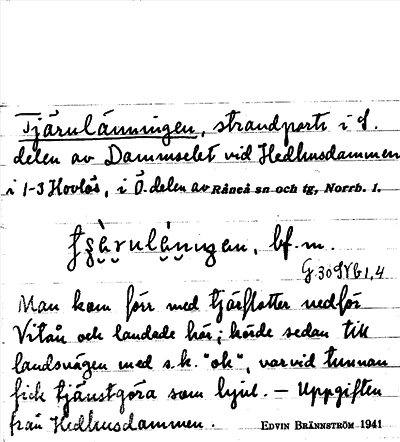 Tjärulänningen, strandparti i S.
delen av Dammselet vid Hedhusdammen
i 1-3 Hovlös, i Ö. delen av Råneå sn och tg, Norrb. l.
bf. m.
G. 30
Man kom förr med tjärflottar nedför
Vitån och landade här; körde sedan till
landsvägen med s.k. "ok", varvid tunnan
fick tjänstgöra som hjul. — Uppgiften
från Hedhusdammen. EDVIN BRÄNNSTRÖM 1941